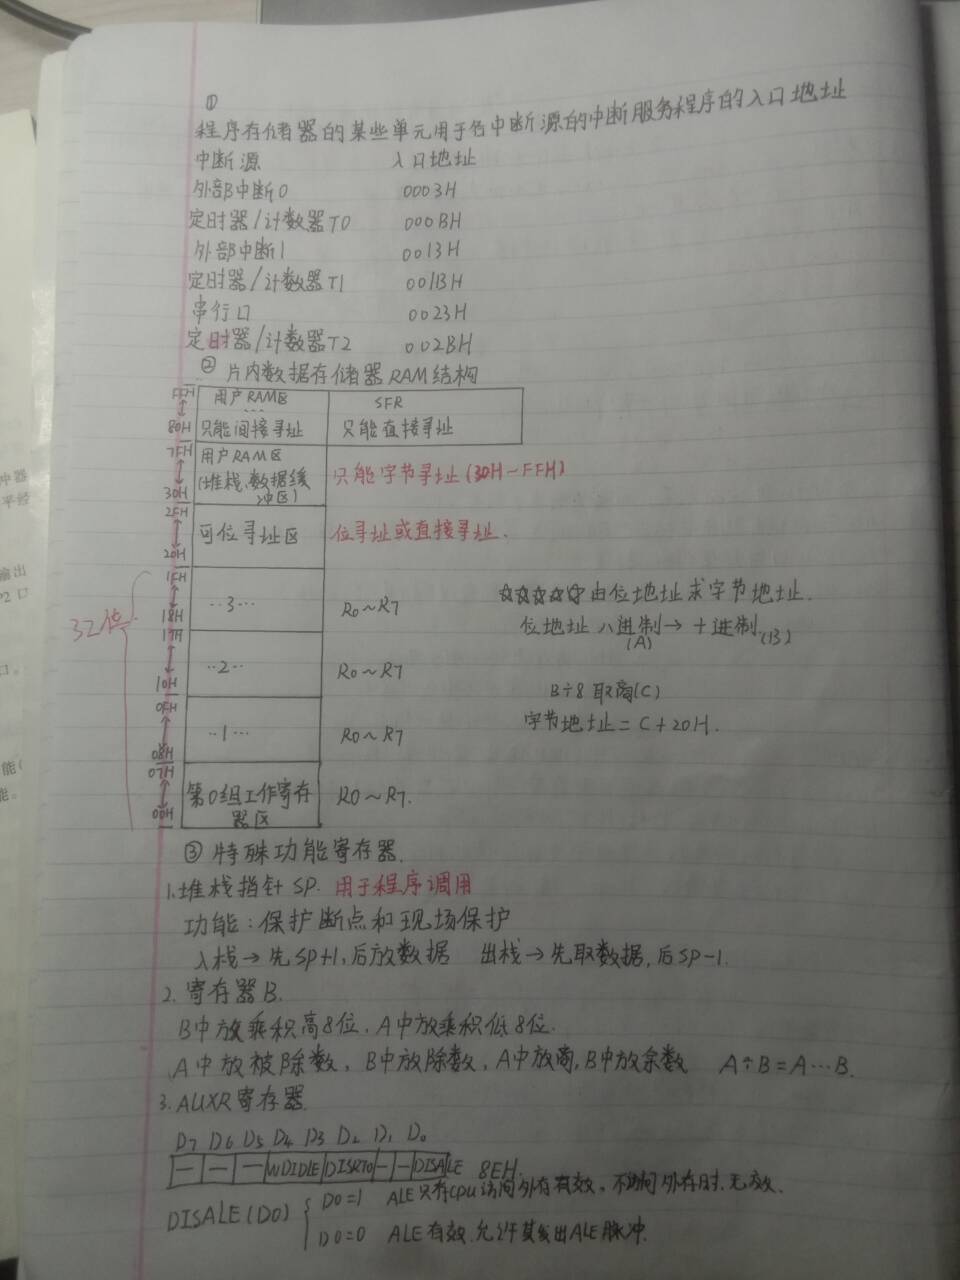 ①
程序存储器的某些单元用于各中断源的中断服务程序的入口地址
中断源 入口地址
外部中断0 0003H
定时器/计数器T0 000BH
外部中断1 0013H
定时器/计数器T1 001BH
串行口 0023H
定时器/计数器T2 002BH
② 片内数据存储器RAM结构
FFH 用户RAM区 SFR
...
80H 只能间接寻址 只能直接寻址
7FH 用户RAM区
(堆栈、数据缓 只能字节寻址(30H-FFH)
30H 冲区)
2FH
可位寻址区 位寻址或直接寻址.
20H
1FH
..3... R0~R7 ☆☆☆☆☆由位地址求字节地址.
18H
32位 17H 位地址 八进制→十进制.
(A) (B)
..2.. R0~R7
10H B÷8 取商(C)
0FH
字节地址=C+20H.
..1... R0~R7
08H
07H
第0组工作寄存 R0~R7.
00H 器区
③ 特殊功能寄存器.
1.堆栈指针SP. 用于程序调用
功能:保护断点和现场保护
入栈→先SP+1,后放数据 出栈→先取数据,后SP-1.
2. 寄存器B.
B中放乘积高8位.A中放乘积低8位.
A中放被除数,B中放除数,A中放商,B中放余数 A÷B=A...B.
3. AUXR寄存器.
D7 D6 D5 D4 D3 D2 D1 D0
— — — WDIDLE DISRTO — — DISALE 8EH.
DISALE(D0) D0=1 ALE只有CPU访问外存有效,不访问外存时.无效.
D0=0 ALE有效.允许其发出ALE脉冲.
冲器
平经
输出
P2口
口。
能(
能。